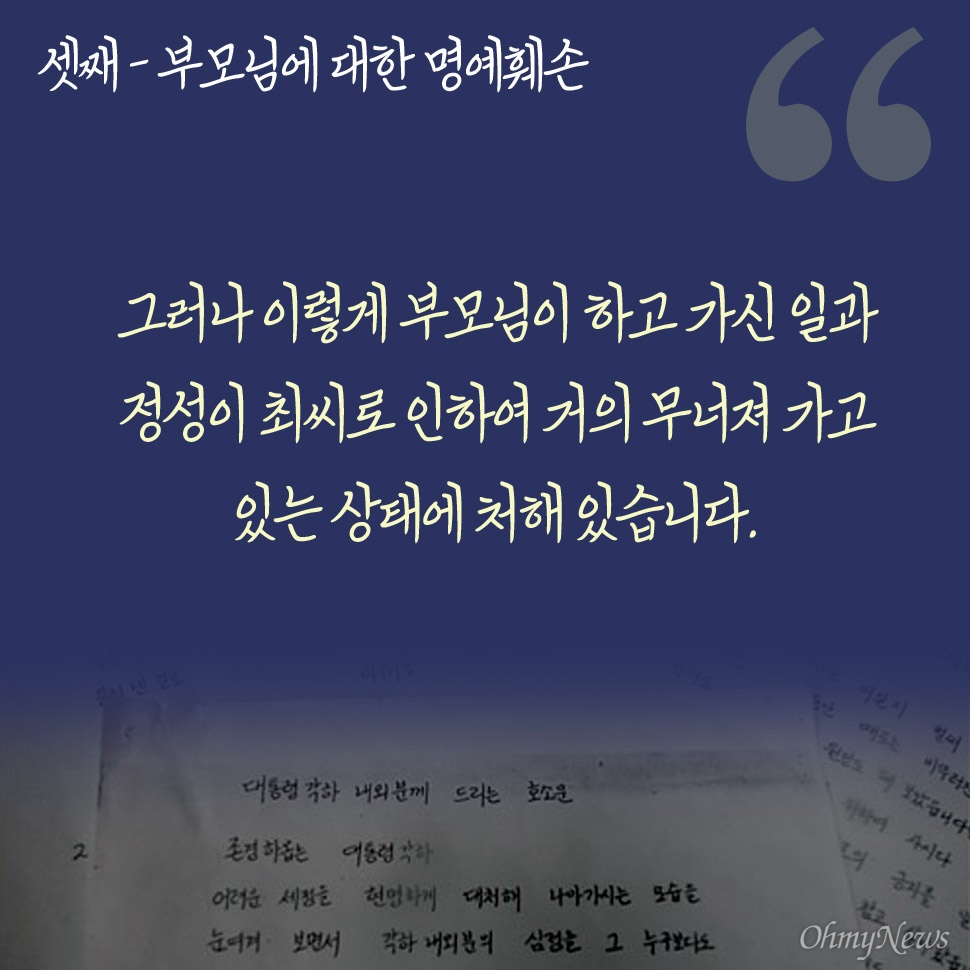 셋째 - 부모님에 대한 명예훼손
그러나 이렇게 부모님이 하고 가신 일과
정성이 최씨로 인하여 거의 무너져 가고
있는 상태에 처해 있습니다.
대통령 각하 내외분께 드리는 호소문
2
존경하옵는 대통령 각하
어려운 세정을 현명하게 대처해 나아가시는 모습을
눈여겨 보면서 각하 내외분의 심정을 그 누구보다도
OhmyNews